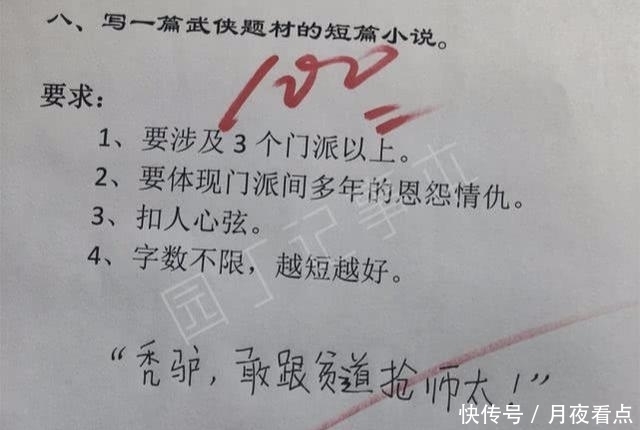 八、写一篇武侠题材的短篇小说。
100
要求：
1、要涉及 3 个门派以上。
2、要体现门派间多年的恩怨情仇。
3、扣人心弦。
4、字数不限，越短越好。
园丁记事本
“秃驴，敢跟贫道抢师太！”
快传号 / 月夜看点